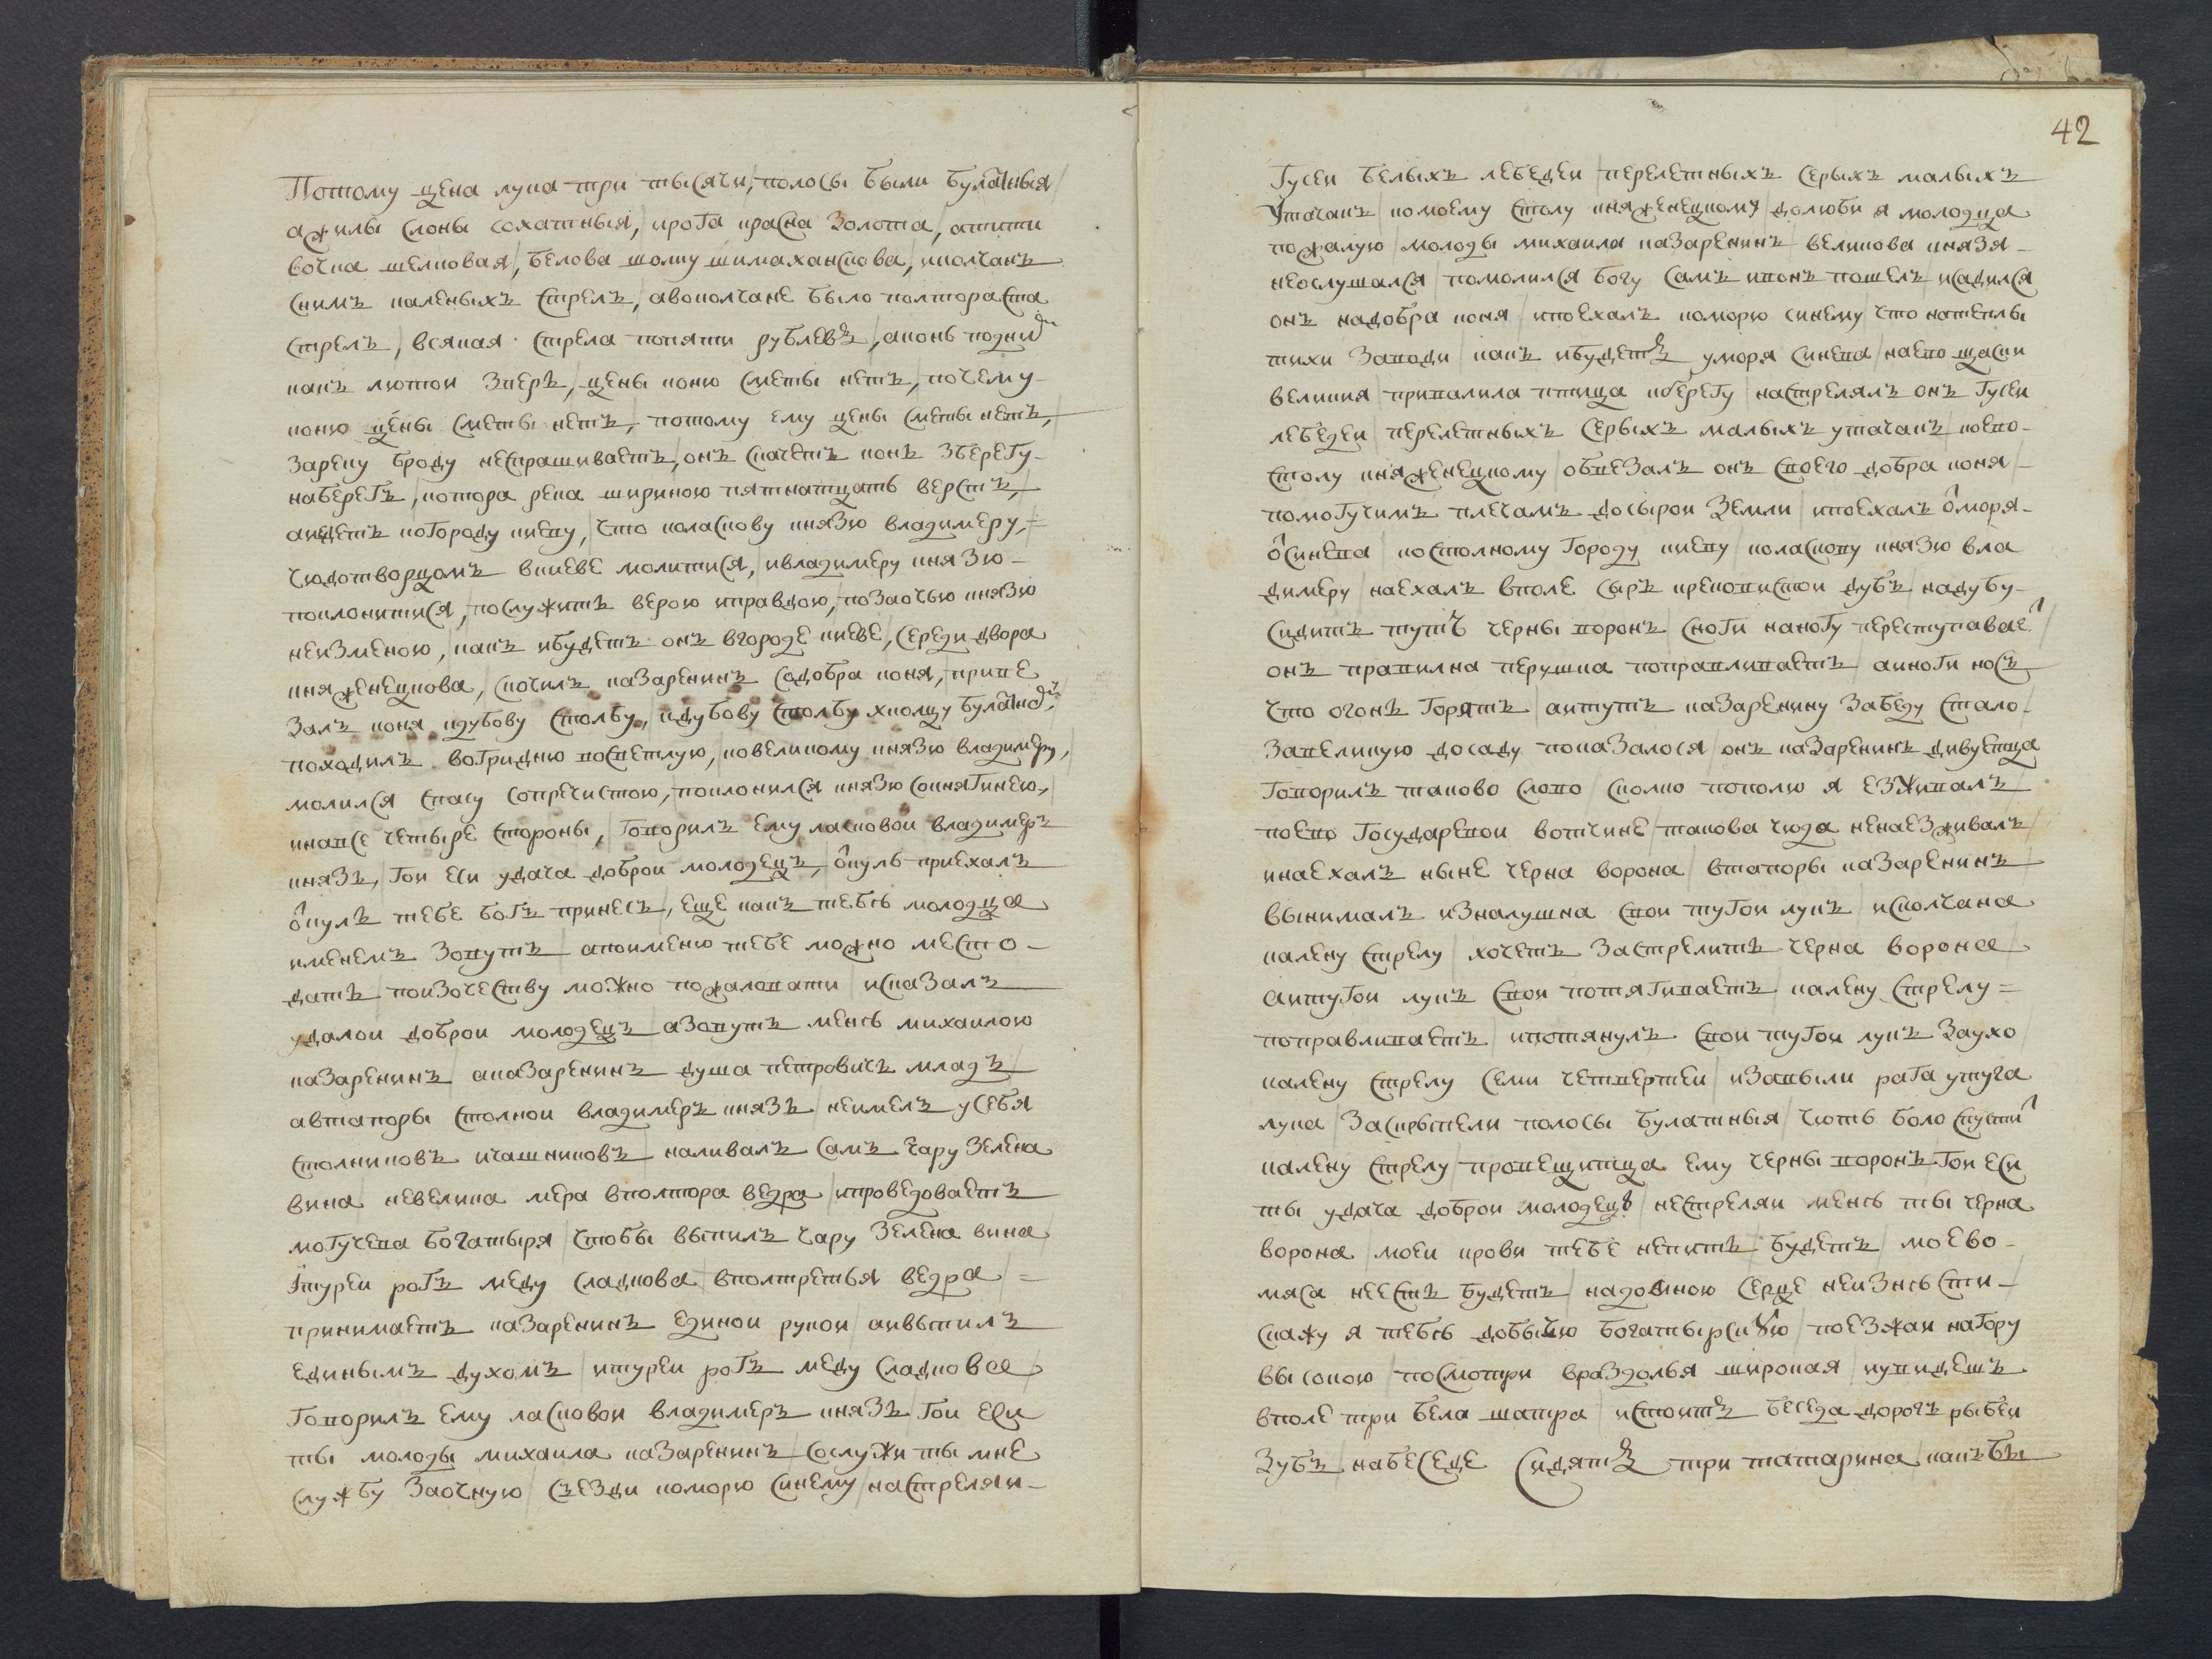 Потому цена лука три тысячи, полосы были булатныя
а жилы слоны сохатныя, и рога красна золота, а тети
вочка шелковая, белова шолку шимаханскова, и колчанъ
снимъ каленыхъ стрелъ, а во колчане было полтораста
стрелъ, всякая стрела попяти рублевъ, а конь подним
какъ лютои зверь, цены коню сметы нетъ, почему
коню цены сметы нетъ, потому ему цены сметы нетъ,
зареку броду неспрашиваетъ, онъ скачетъ конь зберегу
наберегъ, котора река шириною пятнатцать верстъ,
аидетъ когороду киеву, что коласкову князю владимеру,
чюдотворцомъ вкиеве молитися, и владимеру князю
поклонитися, послужить верою и правдою, позаочью князю
неизменою, какъ ибудетъ онъ вгороде киеве, середи двора
княженецкова, скочилъ казаренинъ содобра коня, приве
залъ коня кдубову столбу, кдубову столбу хкольцу булатно
походилъ вогридню восветлую, ковеликому князю владимеру,
молился спасу сопречистою, поклонился князю сокнягинею,
инавсе четыре стороны, говорилъ ему ласковои владимеръ
князь, гои еси удача доброи молодецъ, о̂куль приехалъ
о̂кулъ тебе богъ принесъ, еще какъ тебѣ молодца
именемъ зовутъ апоименю тебе можно место
дать поизочеству можно пожаловати исказалъ
удалои доброи молодецъ азовутъ менѣ михаилою
казаренинъ аказаренинъ душа петровичъ младъ
автапоры столнои владимеръ князь неимелъ усебя
столниковъ ичашниковъ наливалъ самъ чару зелена
вина невелика мера вполтора ведра ипроведоваетъ
могучева богатыря чтобы выпилъ чару зелена вина
Iтуреи рогъ меду сладкова вполтретья ведра
принимаетъ казаренинъ единои рукои аивыпилъ
единымъ духомъ итуреи рогъ меду сладкова
говорилъ ему ласковои владимеръ князь гои еси
ты молоды михаила казаренинъ сослужи ты мне
службу заочную съезди коморю синему настреляи
42
Гусеи белыхъ лебедеи перелетныхъ серыхъ малыхъ
утачакъ комоему столу княженецкому долюби я молодца
пожалую молоды михаила казаренинъ великова князя
неослушался помолился богу самъ ивонъ пошелъ исадился
онъ надобра коня ипоехалъ коморю синему что натеплы
тихи заводи какъ ибудетъ уморя синева наево щаски
великия привалила птица кберегу настрелялъ онъ гусеи
лебедеи перелетныхъ серыхъ малыхъ утачакъ коево
столу княженецкому обвезалъ онъ своего добра коня
помогучимъ плечамъ досырои земли ипоехалъ о̂моря
о̂синева костолному городу киеву коласкову князю вла
димеру наехалъ вполе сыръ кряковистои дубъ надубу
сидитъ тутъ черны воронъ сноги наногу переступавае
онъ правилна перушка поправливаетъ аиноги носъ
что огонь горятъ аитутъ казаренину забеду стало
завеликую досаду показалося онъ казаренинъ дивуетца
говорилъ таково слово сколко пополю я езживалъ
поево государевои вотчине такова чюда ненаезживалъ
инаехалъ ныне черна ворона втапоры казаренинъ
вынималъ изналушна свои тугои лукъ исколчана
калену стрелу хочетъ застрелить черна ворона
аитугои лукъ свои потягиваетъ калену стрелу
поправливаетъ ипотянулъ свои тугои лукъ заухо
калену стрелу семи четвертеи изавыли рага утуга
лука заскрыпели полосы булатныя чють боло спусти
калену стрелу провещитца ему черны воронъ гои еси
ты удача доброи молодецъ нестреляи менѣ ты черна
ворона моеи крови тебе непить будетъ моево
мяса неесть будетъ надомною серце неизнѣсти
скажу я тебѣ добычю богатырскую поезжаи нагору
высокою посмотри враздолья широкая иувидешъ
вполе три бела шатра истоитъ беседа дорогъ рыбеи
зубъ набеседе сидятъ три татарина какъ бы